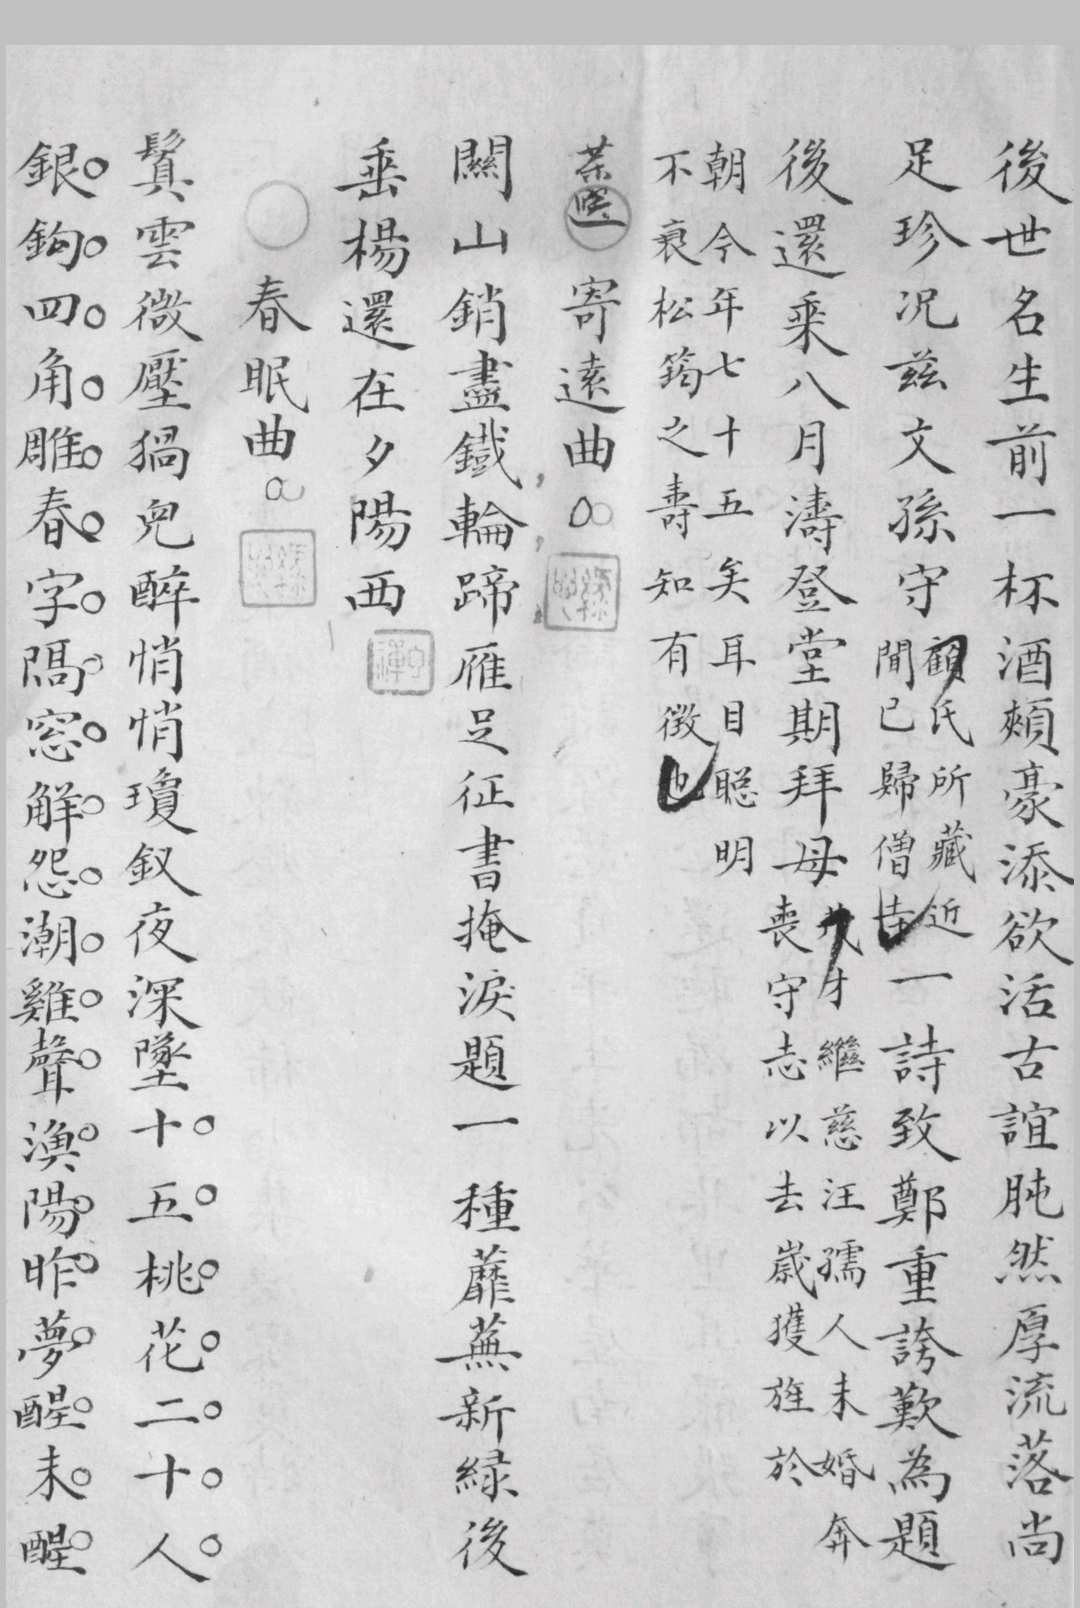 後世名生前一杯酒頰豪添欲活古誼肫然厚流落尚
足珍况茲文孫守
顧氏所藏近
間已歸僧寺
一詩致鄭重誇歎為題
後還乗八月濤登堂期拜母
茂才繼慈汪孺人未婚奔
喪守志以去歲獲旌於
朝今年七十五矣耳目聰明
不衰松筠之壽知有徵也
寄遠曲
關山銷盡鐵輪蹄雁足征書掩淚題一種蘼蕪新緑後
垂楊還在夕陽西
春眠曲
鬒雲微壓猧兒醉悄悄瓊釵夜深墜十五桃花二十人
銀鉤四角雕春字隔窓解怨潮雞聲漁陽昨夢醒未醒